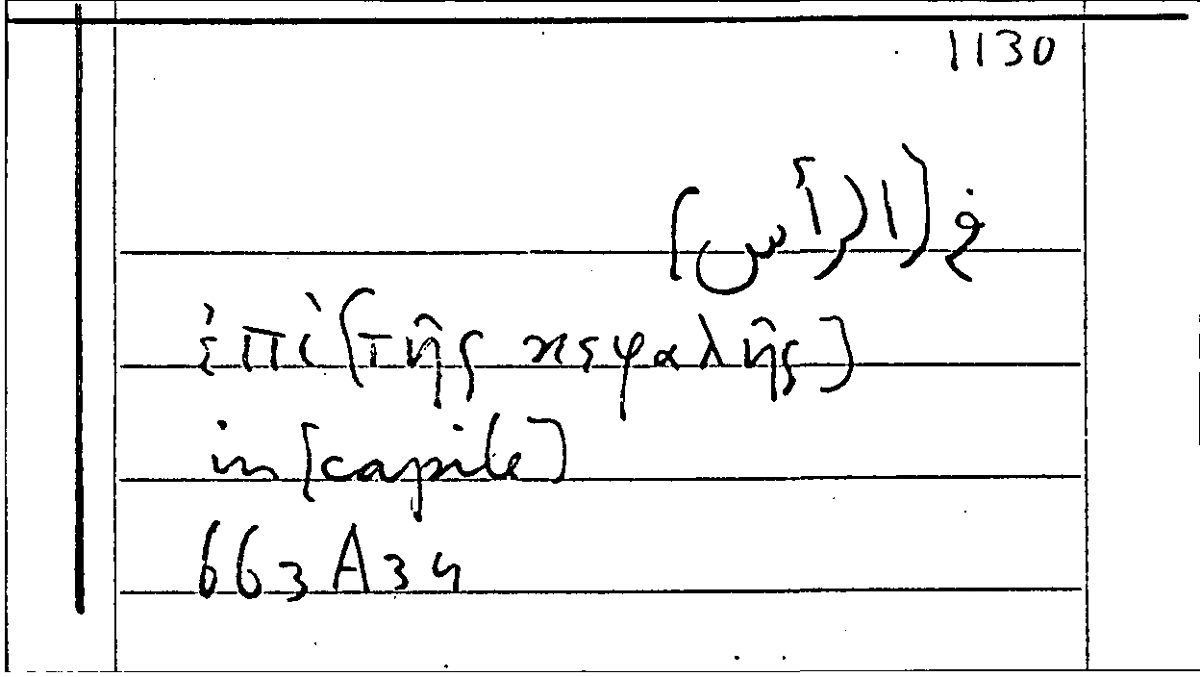 1130
في [الرأس]
ἐπὶ [τῆς κεφαλῆς]
in [capite]
663 A 34